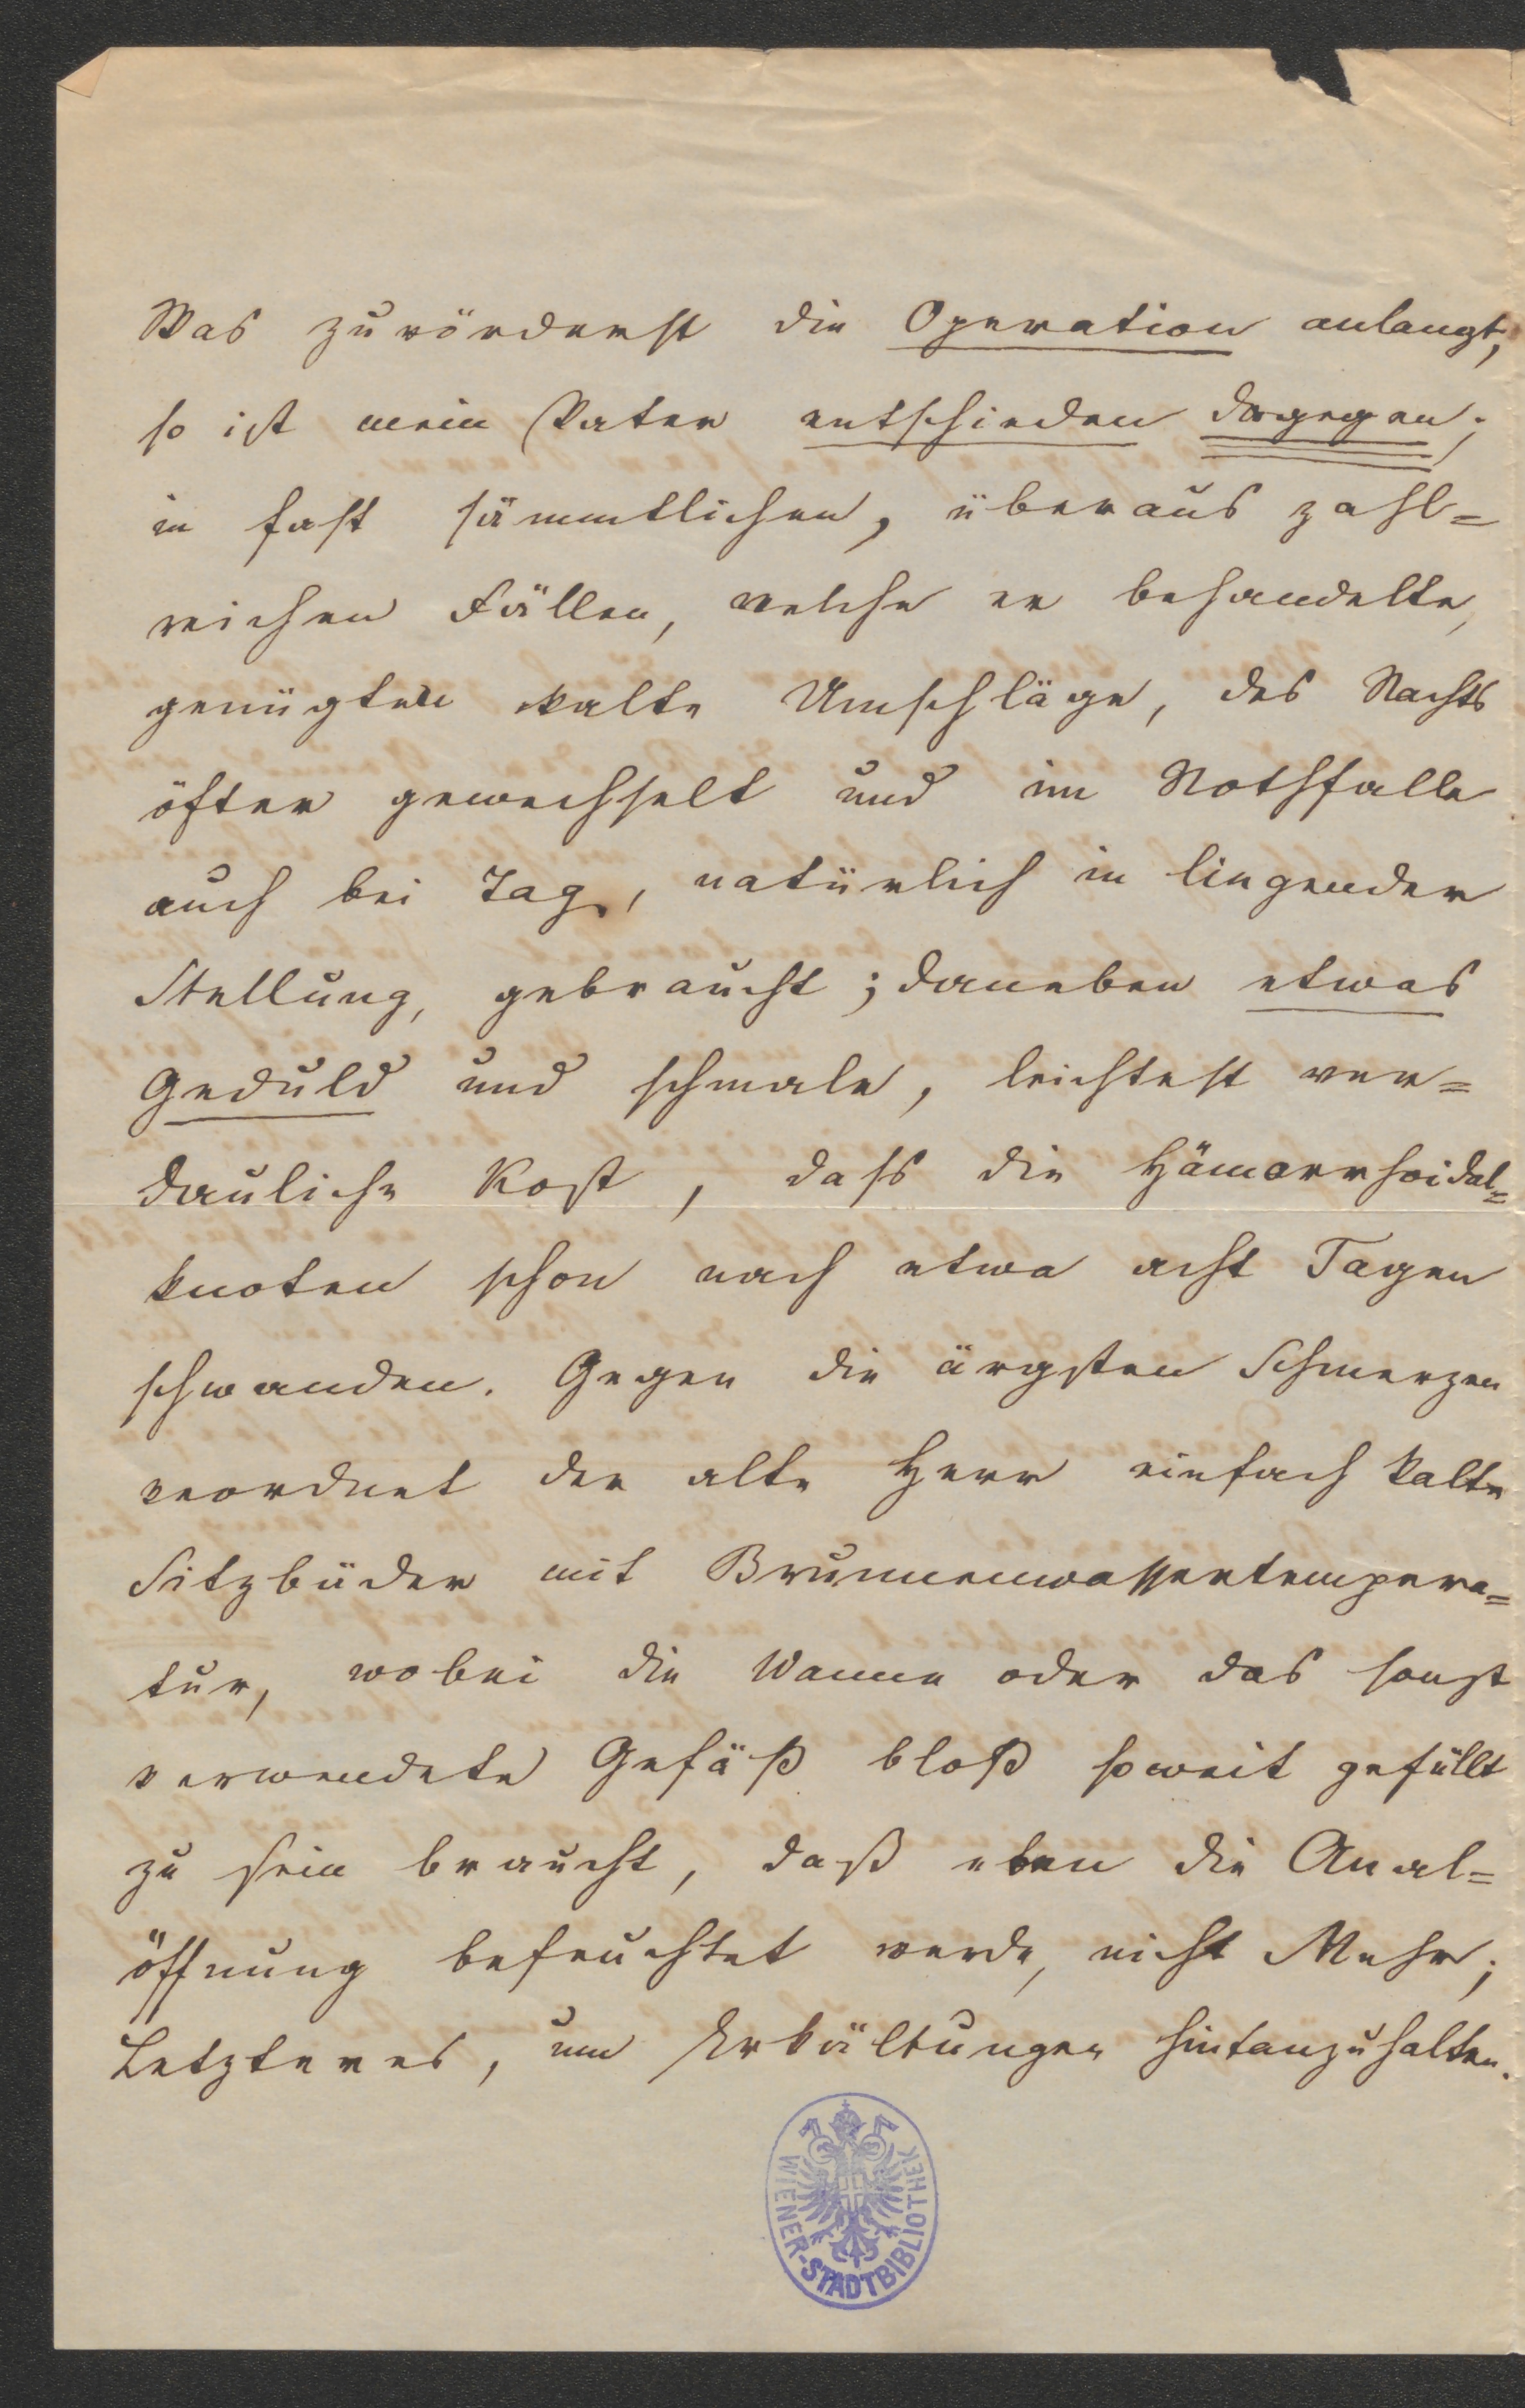 Was zuvörderst die Operation anlangt,
so ist mein Vater entschieden dagegen;
in fast sämmtlichen, überaus zahl=
reichen Fällen, welche er behandelte,
genügten kalte Umschläge, des Nachts
öfter gewechselt und im Nothfalle
auch bei Tag, natürlich in liegender
Stellung, gebraucht; daneben etwas
Geduld und schmale, leichtest ver=
dauliche Kost, dass die Hämorrhoidal=
knoten schon nach etwa acht Tagen
schwanden. Gegen die ärgsten Schmerzen
verordnet der alte Herr einfach kalte
Sitzbäder mit Brunnenwassertempera=
tur, wobei die Wanne oder das sonst
verwendete Gefäß bloß soweit gefüllt
zu sein braucht, daß eben die Anal=
öffnung befeuchtet werde, nicht Mehr;
Letzteres, um Erkältungen hintanzuhalten.
WIENER-STADTBIBLIOTHEK